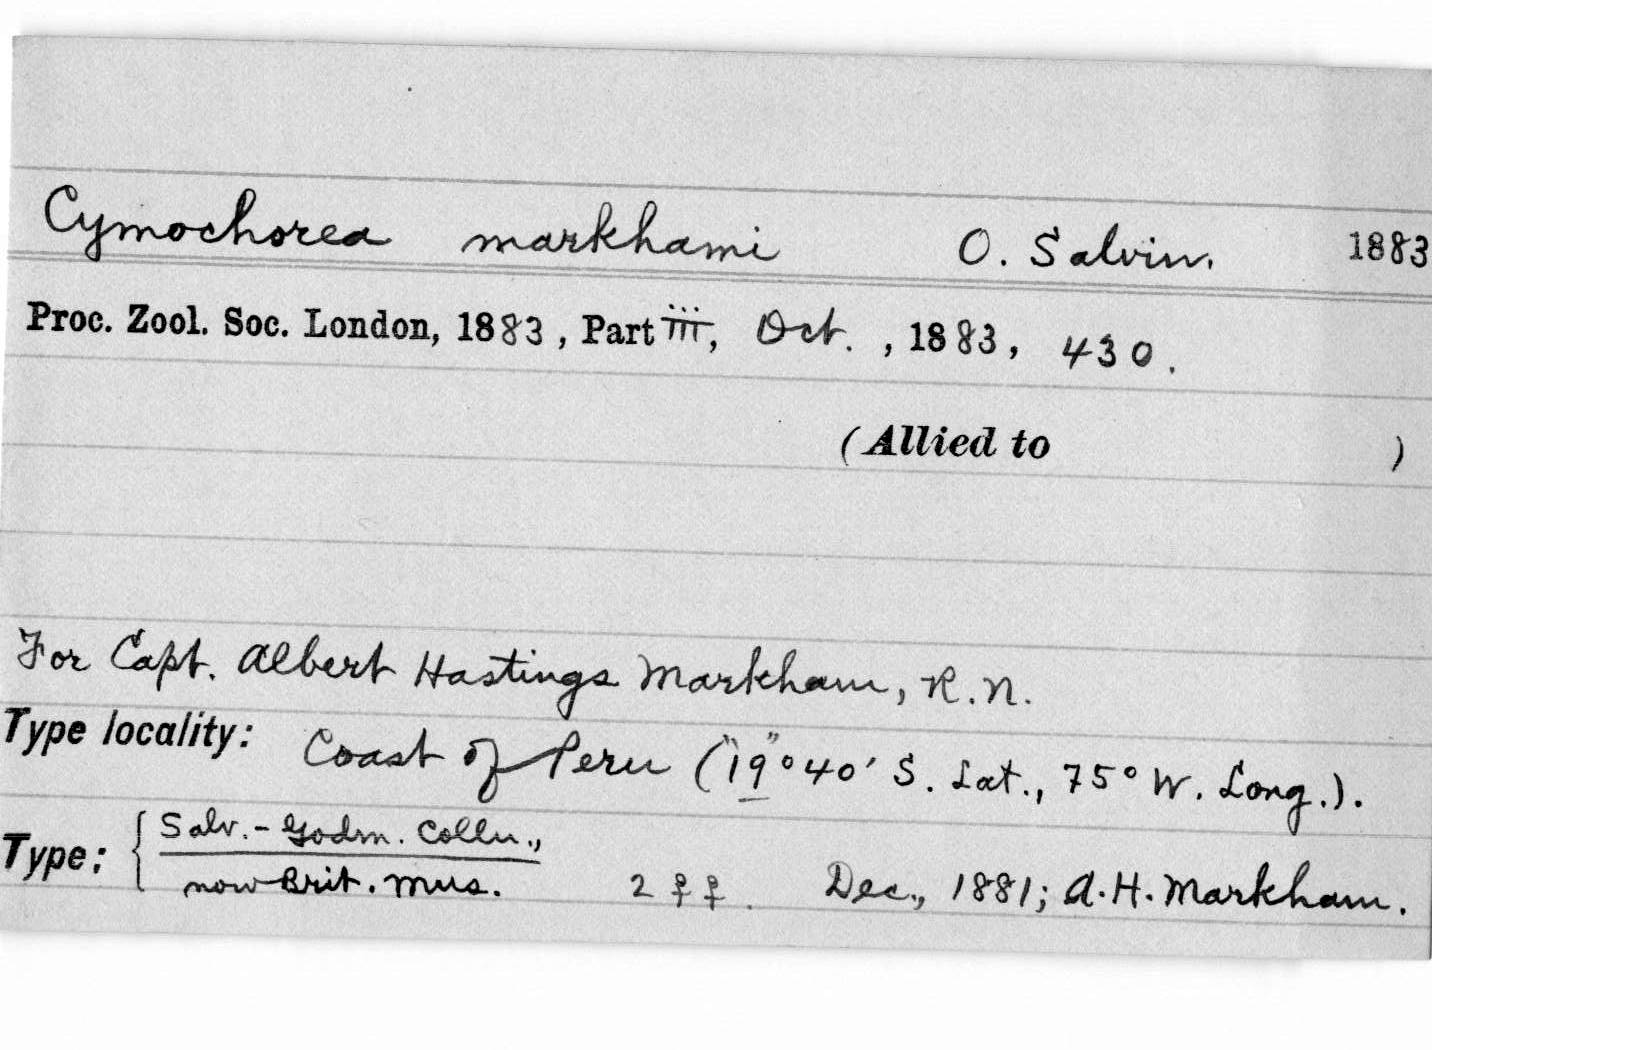 Cymochorea markhami O. Salvin. 1883
Proc. Zool. Soc. London, 1883, Part iii, Oct., 1883, 430.
(Allied to )
For Capt. Albert Hastings Markham, R.N.
Type locality: Coast of Peru ("19"°40' S. Lat., 75° W. Long.).
Type: { Salv.-Godm. Colln.,
now Brit. Mus. 2 ♀♀. Dec., 1881; A.H. Markham.